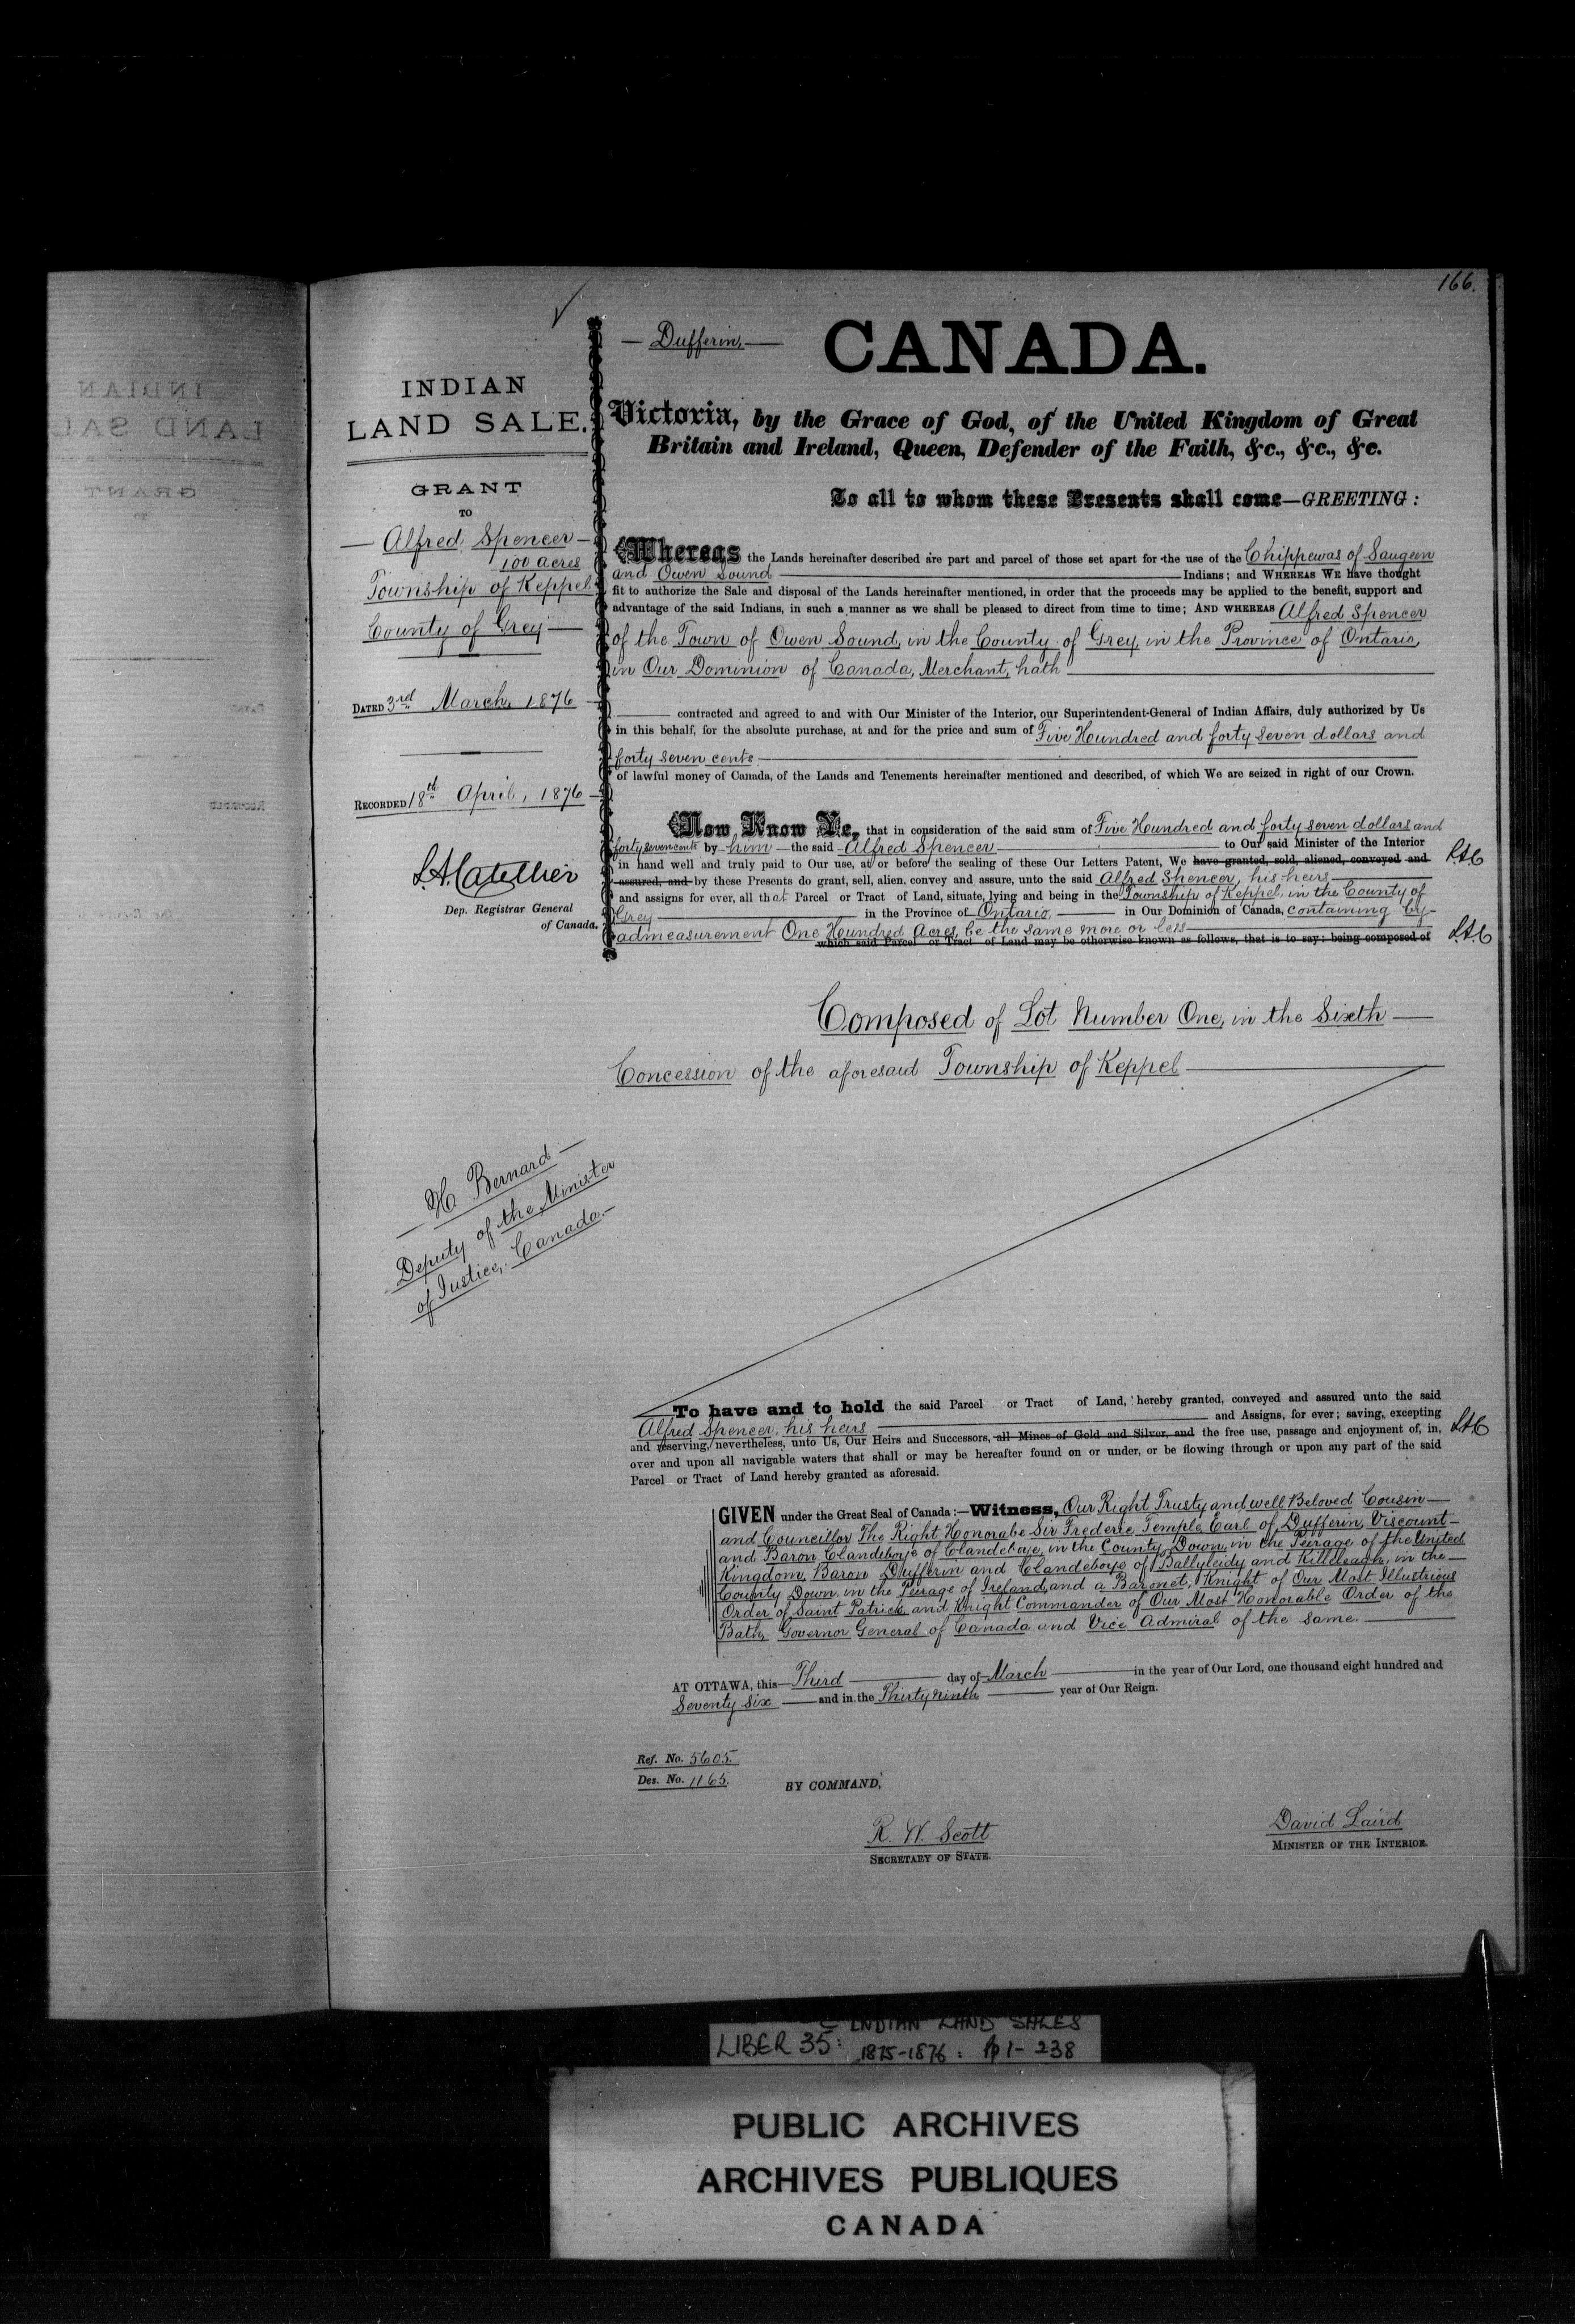 166.
INDIAN
LAND SALE.
GRANT
TO
Alfred Spencer
100 acres
Township of Keppel
County of Grey
DATED 3rd March, 1876
RECORDED 18th April, 1876
L.A. Catellier
Dep. Registrar General
of Canada.
H Bernard
Deputy of the Minister
of Justice, Canada.
Dufferin,
CANADA.
Victoria, by the Grace of God, of the United Kingdom of Great
Britain and Ireland, Queen, Defender of the Faith, &c., &c., &c.
To all to whom these Presents shall come—GREETING:
Whereas the Lands hereinafter described are part and parcel of those set apart for the use of the Chippewas of Saugeen
and Owen Sound Indians; and WHEREAS WE have thought
fit to authorize the Sale and disposal of the Lands hereinafter mentioned, in order that the proceeds may be applied to the benefit, support and
advantage of the said Indians, in such a manner as we shall be pleased to direct from time to time; AND WHEREAS Alfred Spencer
of the Town of Owen Sound, in the County of Grey, in the Province of Ontario,
in Our Dominion of Canada, Merchant, hath
contracted and agreed to and with Our Minister of the Interior, our Superintendent-General of Indian Affairs, duly authorized by Us
in this behalf, for the absolute purchase, at and for the price and sum of Five Hundred and forty seven dollars and
forty seven cents
of lawful money of Canada, of the Lands and Tenements hereinafter mentioned and described, of which We are seized in right of our Crown.
Now Know Ye, that in consideration of the said sum of Five Hundred and forty seven dollars and
forty seven cents by him the said Alfred Spencer to Our said Minister of the Interior
in hand well and truly paid to Our use, at or before the sealing of these Our Letters Patent, We have granted, sold, aliened, conveyed and L.A.C
assured, and by these Presents do grant, sell, alien, convey and assure, unto the said Alfred Spencer, his heirs
and assigns for ever, all that Parcel or Tract of Land, situate, lying and being in the Township of Keppel, in the County of
Grey in the Province of Ontario, in Our Dominion of Canada, containing by
admeasurement One Hundred Acres, be the same more or less
which said Parcel or Tract of Land may be otherwise known as follows, that is to say: being composed of L.A.C
Composed of Lot Number One, in the Sixth
Concession of the aforesaid Township of Keppel
To have and to hold the said Parcel or Tract of Land, hereby granted, conveyed and assured unto the said
Alfred Spencer, his heirs and Assigns, for ever; saving, excepting
and reserving, nevertheless, unto Us, Our Heirs and Successors, all Mines of Gold and Silver, and the free use, passage and enjoyment of, in, L.A.C
over and upon all navigable waters that shall or may be hereafter found on or under, or be flowing through or upon any part of the said
Parcel or Tract of Land hereby granted as aforesaid.
GIVEN under the Great Seal of Canada:—Witness, Our Right Trusty and well Beloved Cousin
and Councillor The Right Honorabe Sir Frederic Temple, Earl of Dufferin, Viscount
and Baron Clandeboye of Clandeboye, in the County Down, in the Peerage of the United
Kingdom, Baron Dufferin and Clandeboye of Ballyleidy and Killeleagh, in the
County Down in the Peerage of Ireland, and a Baronet, Knight of Our Most Illustrious
Order of Saint Patrick, and Knight Commander of Our Most Honorable Order of the
Bath, Governor General of Canada and Vice Admiral of the same.
AT OTTAWA, this Third day of March in the year of Our Lord, one thousand eight hundred and
Seventy Six and in the Thirty ninth year of Our Reign.
Ref. No. 5605.
Des. No. 1165.
BY COMMAND,
R. W. Scott
SECRETARY OF STATE.
David Laird
MINISTER OF THE INTERIOR.
INDIAN LAND SALES
LIBER 35: 1875-1876: pp 1-238
PUBLIC ARCHIVES
ARCHIVES PUBLIQUES
CANADA